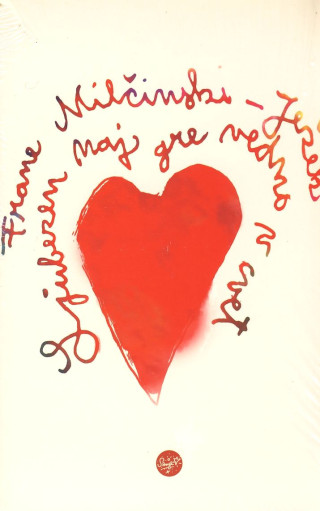 Frane Milčinski - Ježek
Ljubezen naj gre vedno v svet